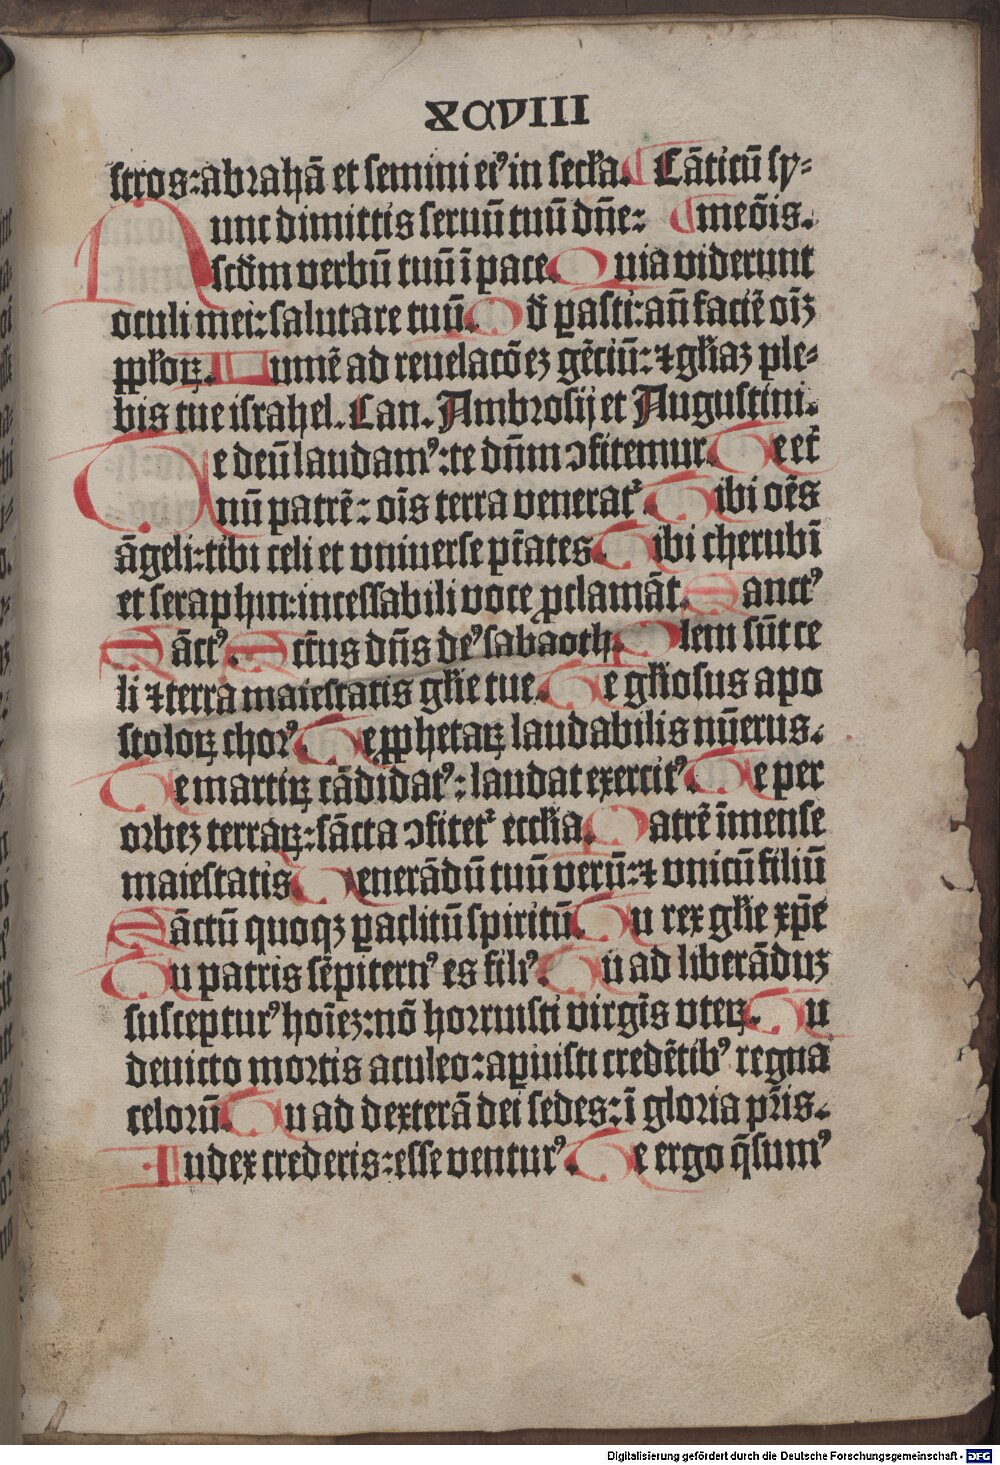 XCVIII
stros: abrahā et semini eiꝰ in secľa. Cāticū sy⸗
Nunc dimittis seruū tuū dn̄e: meōis.
scd̄m verbū tuū ī pace. Quia viderunt
oculi mei: salutare tuū. Qd̄ ꝑasti: an̄ faciē oīꝫ
ppľoꝝ. Lumē ad reuelacōeꝫ gēciū: ⁊ gľiaꝫ ple⸗
bis tue israhel. Can. Ambrosij et Augustini.
Te deū laudamꝰ: te dn̄m ↄfitemur. Te et̄
nū patrē: oīs terra venerat᷑. Tibi oēs
āgeli: tibi celi et vniuerse pt̄ates. Tibi cherubī
et seraphin: incessabili voce ꝓclamāt. Sanctꝰ
Sāctꝰ. Sct̄us dn̄s deꝰ sabaoth. Plem sūt ce
li ⁊ terra maiestatis gľie tue. Te gľiosus apo
stoloꝝ chorꝰ. Te ꝓphetaꝝ laudabilis nūerus.
Te martiꝝ cādidatꝰ: laudat exercitꝰ. Te per
orbeꝫ terraꝝ: sācta ↄfitet᷑ eccľia. Patrē īmense
maiestatis Venerādū tuū verū: ⁊ vnicū filiū
Sāctū quoqꝫ ꝑaclitū spiritū. Tu rex gľie xp̄e
Tu patris sēpiternꝰ es filiꝰ. Tu ad liberāduꝫ
suscepturꝰ hoīeꝫ: nō horruisti virgīs vteꝝ. Tu
deuicto mortis aculeo: aꝑuisti credētibꝰ regna
celorū. Tu ad dexterā dei sedes: ī gloria pr̄is.
Iudex crederis: esse venturꝰ. Te ergo q̄sumꝰ
Digitalisierung gefördert durch die Deutsche Forschungsgemeinschaft - DFG